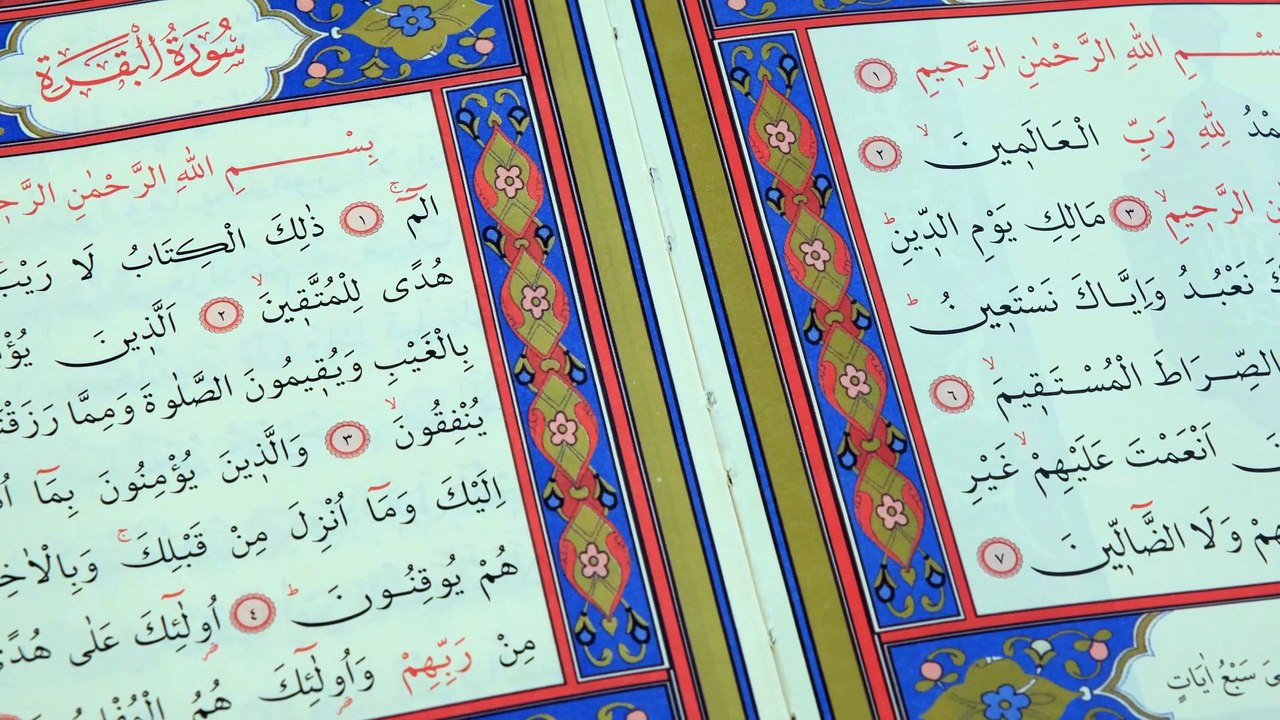 ـسْـــــمِ اللهِ الرَّحْمٰنِ الرَّحٖيمِ ١
ـمْدُ لِلّٰهِ رَبِّ الْعَالَمٖينَۙ ٢
الرَّحٖيمِۙ ٣ مَالِكِ يَوْمِ الدّٖينِؕ
نَعْبُدُ وَاِيَّاكَ نَسْتَعٖينُؕ
الصِّرَاطَ الْمُسْتَقٖيمَۙ ٦
اَنْعَمْتَ عَلَيْهِمْۙ غَيْرِ
وَلَا الضَّٓالّٖينَ ٧
سَبْعُ اٰيَاتٍ
سُورَةُ الْبَقَرَةِ
بِسْـــــمِ اللهِ الرَّحْمٰنِ
الٓمٓۚ ١ ذٰلِكَ الْكِتَابُ لَا رَيْبَ
هُدًى لِلْمُتَّقٖينَۙ ٢ اَلَّذٖينَ
بِالْغَيْبِ وَيُقٖيمُونَ الصَّلٰوةَ وَمِمَّا
يُنْفِقُونَۙ ٣ وَالَّذٖينَ يُؤْمِنُونَ بِمَٓا
اِلَيْكَ وَمَٓا اُنْزِلَ مِنْ قَبْلِكَۚ
هُمْ يُوقِنُونَؕ ٤ اُولٰٓئِكَ عَلٰى هُدًى
مِنْ رَبِّهِمْ وَاُولٰٓئِكَ هُمُ